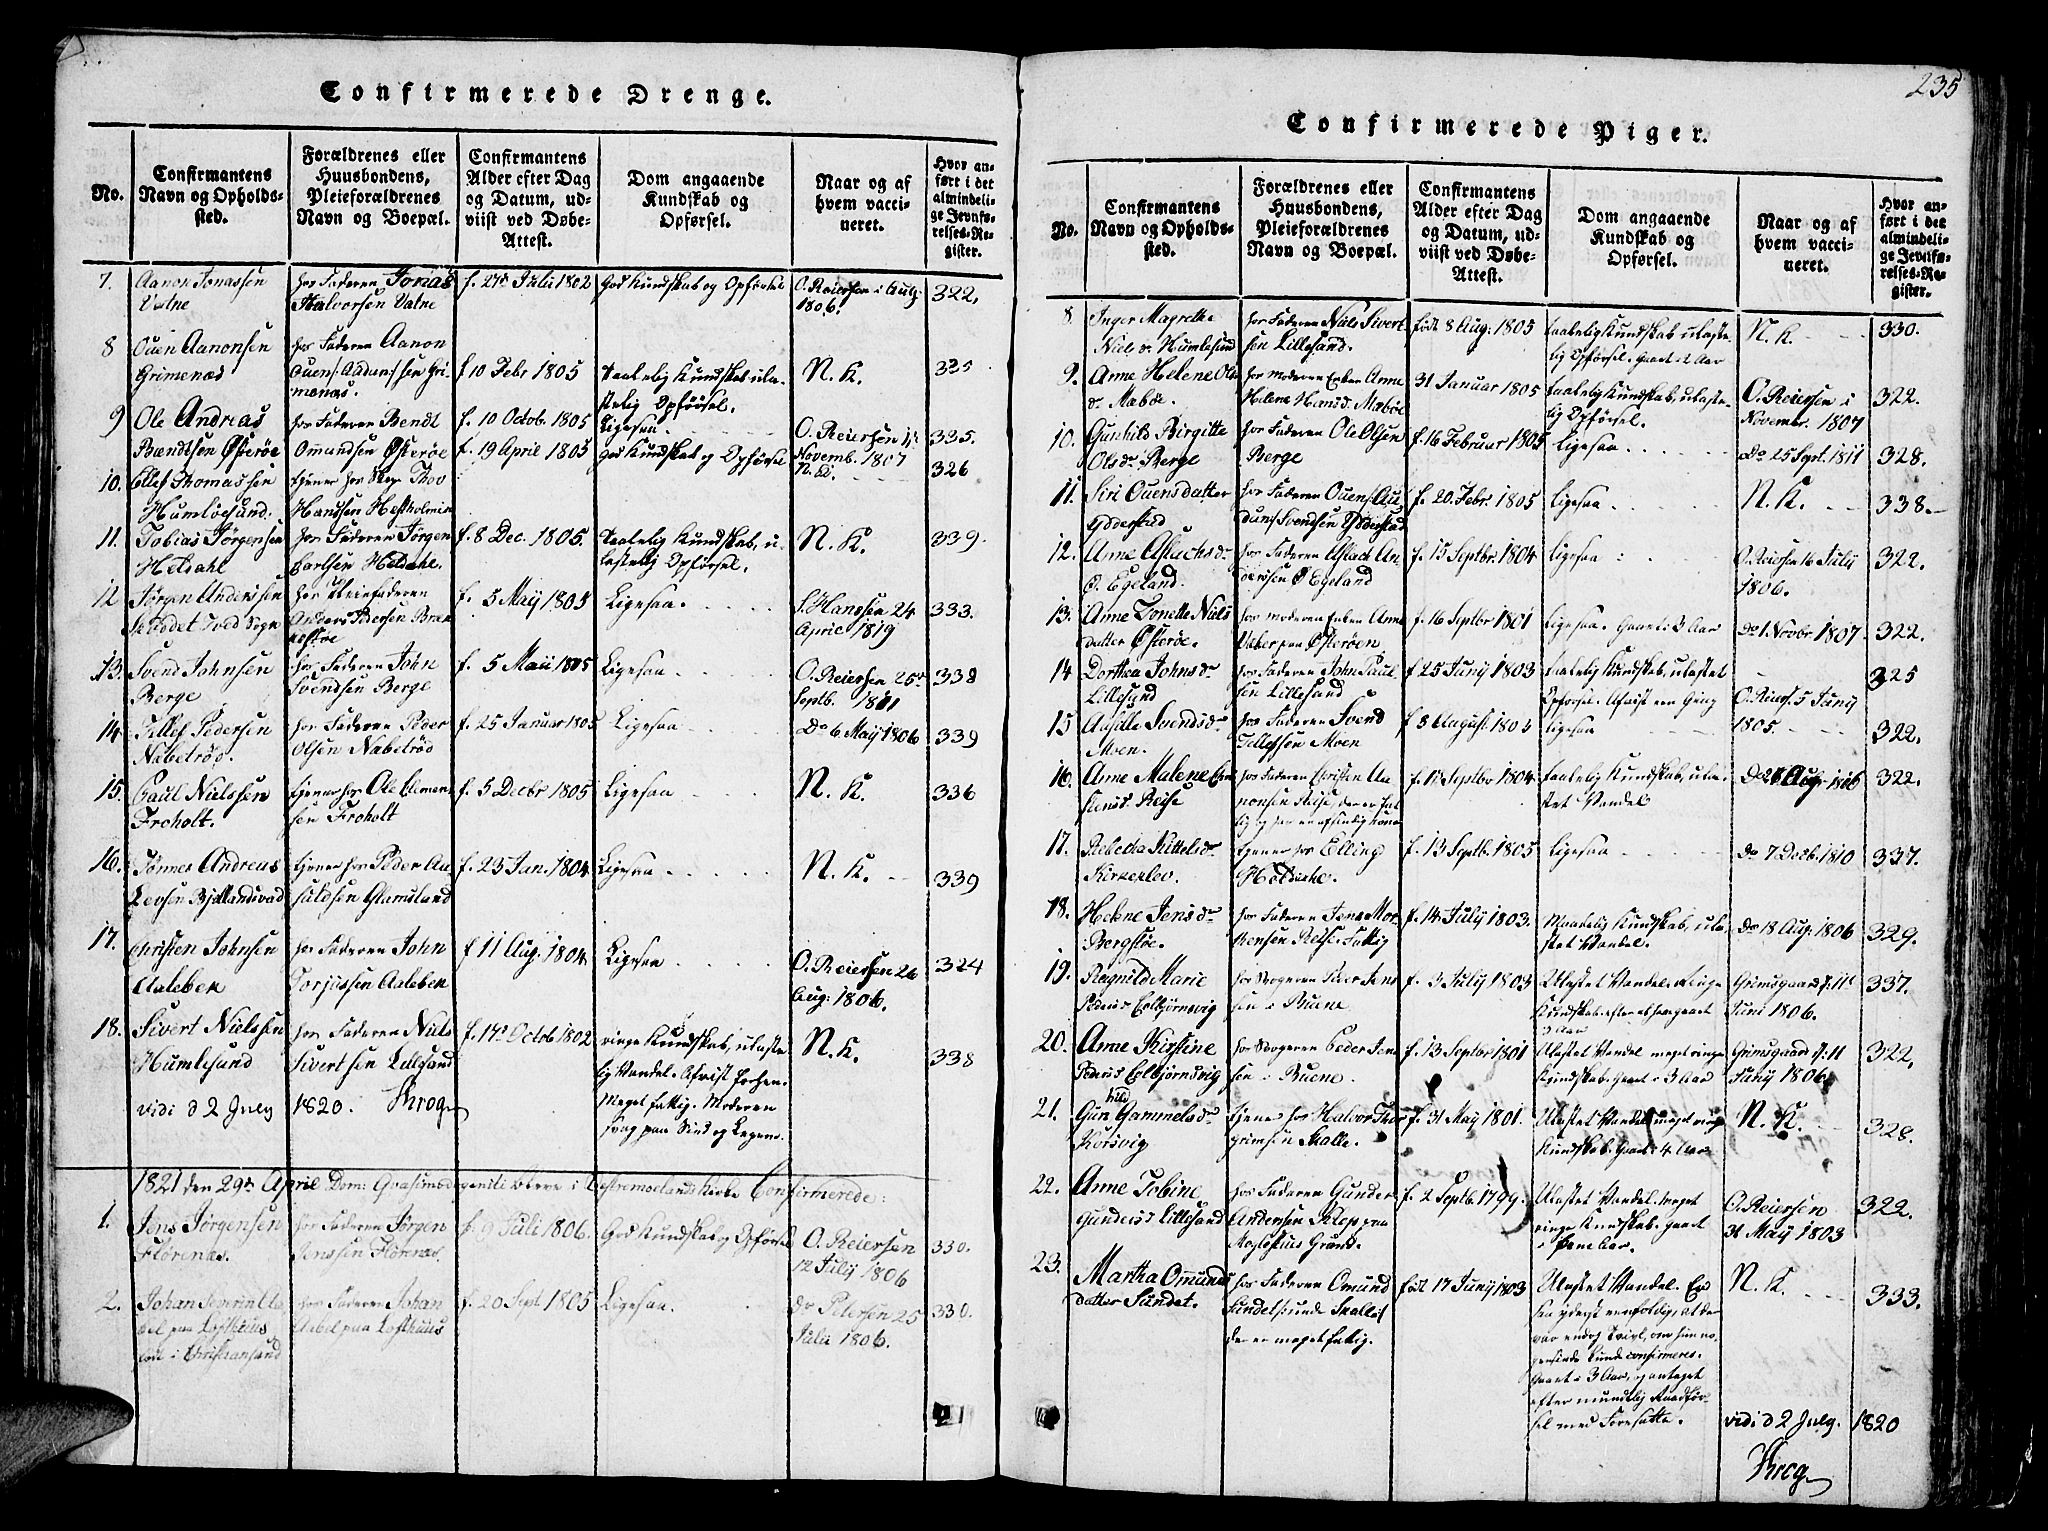 235
Confirmerede Drenge.
No.
Confirmantens
Navn og Opholds-
sted.
Forældrenes eller
Huusbondens,
Pleieforældrenes
Navn og Boepæl.
Confirmantens
Alder efter Dag
og Datum, ud-
viist ved Døbe-
Attest.
Dom angaaende
Kundskab og
Opførsel.
Naar og af
hvem vacci-
neret.
Hvor an-
ført i det
almindeli-
ge Jevnfø-
relses-Re-
gister.
7.
Aanon Jonassen
Valne
hos Faderen Jonas
Halvorsen Valne
f. 27de Juli 1802
God Kundskab og Opførsel
O. Reiersen i Aug:
1806.
322.
8
Ouen Aanonsen
Grimenæs
hos Faderen Aanon
Ouens: Auduns:sen Gri-
menæs.
f 10 Febr 1805
Taalelig Kundskab ula-
stelig Opførsel.
N. K.
325
9
Ole Andreas
Bændtsen Østerøe
hos Faderen Bendt
Ommundsen Østerøe
f. 10 Octob. 1805
Ligesaa
O. Reiersen
Novemb. 1807
335.
10.
Ellef Thomassen
Humløesund.
tjener hos
Hansen Hestholmen
f. 19 April 1805
God Kundskab og Opførsel
N. K.
326
11.
Tobias Jørgensen
Heldahl
hos Faderen Jørgen
Carlsen Heldahl.
f. 8 Dec. 1805.
Taalelig Kundskab, u-
lastelig Opførsel.
N. K.
339.
12
Jørgen Anderssen
hos Pleiefaderen
Anders Pedersen Bræk
f. 5 May 1805
Ligesaa.
S. Hanssen 24
April 1819
333.
13.
Svend Johnsen
Berge
hos Faderen John
Svendsen Berge
f. 5 Maii 1805
Ligesaa
O. Reiersen 25de
Septb. 1811
338
14
Tellef Pedersen
Nabelrøg.
hos Faderen Peder
Olsen Nabelrød
f. 25 Januar 1805
Ligesaa
Do 6 Maij 1806
339
15.
Paul Nielssen
Froholt.
tjener hos Ole Clemen
sen Froholt
f. 5 Decbr 1805
Ligesaa
N. K.
336
16.
Tønnes Andreas
Levsen Bjellandsvad
tjener hos Peder Au
Glamsland
f. 23 Jan. 1804
Ligesaa
N. K.
339
17.
Christen Johnsen
Aalebek
hos Faderen John
Torjussen Aalebek
f 11 Aug. 1804
Ligesaa
O. Reiersen 26
Aug: 1806.
324
18.
Sivert Nielssen
Humlesund
hos Faderen Niels
Sivertsen Lillesand
f. 17de Octob 1802
ringe Kundskab, ulaste
lig Vandel. Afvist forhen.
Meget fattig. Moderen
svag paa Sind og Legeme.
N. K.
338
vidi d 2 July 1820. Krog
1821 den 29de April Dom: Qvasimodogeniti bleve i Vestremoelands Kirke Confirmerede:
1.
Jens Jørgensen
Florenæs.
hos Faderen Jørgen
Jenssen Florenæs.
f. 9 Juli 1806.
God Kundskab og Opførsel
O. Reiersen
12 Julij 1806
330.
2.
Johan Severin
bel paa Lofthuus
født i Christiansand
hos Faderen Johan
Abel paa Lofthuus
f. 20 Sept 1805
Ligesaa.
dr Petersen 25
Julii 1806.
330.
Confirmerede Piger.
No.
Confirmantens
Navn og Opholds-
sted.
Forældrenes eller
Huusbondens,
Pleieforældrenes
Navn og Boepæl.
Confirmantens
Alder efter Dag
og Datum, ud-
viist ved Døbe-
Attest.
Dom angaaende
Kundskab og
Opførsel.
Naar og af
hvem vacci-
neret.
Hvor an-
ført i det
almindeli-
ge Jevnfø-
relses-Re-
gister.
8
Inger Magrethe
Niels dr. Humlesund
hos Faderen Niels Sivert
sen Lillesand.
født 8 Aug: 1805
taalelig Kundskab ulaste-
lig Opførsel. gaaet 2 Aar
N. K.
330.
9.
Anne Helene Ols
dr. Mabøe.
hos moderen Enken Anne
Helene Hansd. Mabøe
31 Januar 1805
taalelig Kundskab, ulaste-
lig Opførsel.
O. Reiersen i
Novembr. 1807
322.
10.
Gunhild Birgitte
Olsdr Berge
hos Faderen Ole Olsen
Berge
f. 16 Februar 1805
Ligesaa
Do 25 Sept. 1811
328.
11.
Siri Ouensdatter
Ydderstad
hos Faderen Ouens: Au
duns: Svendsen Ydderstad
f. 20. Febr. 1805
Ligesaa
N. K.
338.
12.
Anne Aslachsdr
Ø. Egeland.
hos Faderen Aslack An
Ø Egeland
f. 15 Septbr. 1804
Ligesaa
O. Reiersen 16 July
1806.
322.
13.
Anne Tonette Niels
datter Østerøe.
hos moderen Enken Anne
paa Østerøen
f. 16 Septbr 1801
Ligesaa. Gaaet i 3 Aar
Do 1. Novbr. 1807.
322.
14
Dorthea Johnsdr
Lillesund
hos Faderen John Paul
sen Lillesand
f. 25 Juny 1803
taalelig Kundskab, ulastet
Opførsel. Afvist een Gang
325
15
Aasille Svendsdr
Moen.
hos Faderen Svend
Tellefssøn Moen
f. 8 August 1803
Ligesaa
O. Reiers. 5 Juny
1805.
322.
16.
Anne Malene
Reise
hos Faderen Christen Aa
nonsen Reise, der er fat
tig og har en afsindig Kone
f. 17 Septbr 1804
taalelig Kundskab, ula-
stet Vandel
322.
17.
Rebecka Kittelsdr
Kirkeklev.
tjener hos Elling
f. 13 Septb. 1805
Ligesaa
Do 7 Decb. 1810
337.
18.
Helene Jensdr
Bergstøe.
hos Faderen Jens Mor
tensen Reise. Fattig
f. 14 July 1803.
Maadelig Kundskab, ula-
stet Vandel.
Do 18 Aug. 1806
329.
19.
Ragnild Marie
Pedersdr Colbjørnsvig
hos Svogeren Peder Jens
sen i Ruene
f. 3 July 1803
Ulastet Vandel. Ringe
Kundskab. gaaet
3 Aar
Grimsgaard d: 11
Juni 1806.
337.
20.
Anne Kirstine
Pedersdr Colbjørnsvig
hos Svogeren Peder Jens
sen i Ruene.
f. 13 Septbr 1801
Ulastet Vandel meget ringe
Kundskab. gaaet i 3 Aar
Grimsgaard d: 11
Juny 1806
322,
21.
Gunhild Gammelsdr
Korsvig
tjener hos Halvor Thor
grimsen Skalle.
f. 31 May 1801.
Ulastet Vandel meget ringe
Kundskab. Gaaet i 4 Aar
N. K.
328.
22.
Anne Tobine
Gundersdr Lillesand
hos Faderen Gunder
Andersen Klop paa
Grund.
f. 2 Septb. 1799.
Ulastet Vandel. meget
ringe Kundskab. gaaet
i flere Aar.
O. Reiersen
31 May 1803
322.
23.
Martha Omunds
datter Sundet.
hos Faderen Omund
Skalløe
der er meget fattig.
født 17 Juny 1803
Ulastet Vandel. Er
saa yderst eenfoldig, at der
var endog Tvivl, om hun no-
gensinde kunde confirmeres.
Gaaet i 3 Aar, og antaget
efter mundtlig Raadfør-
sel med Foresatte.
N. K.
333.
vidi d 2 July. 1820
Krog